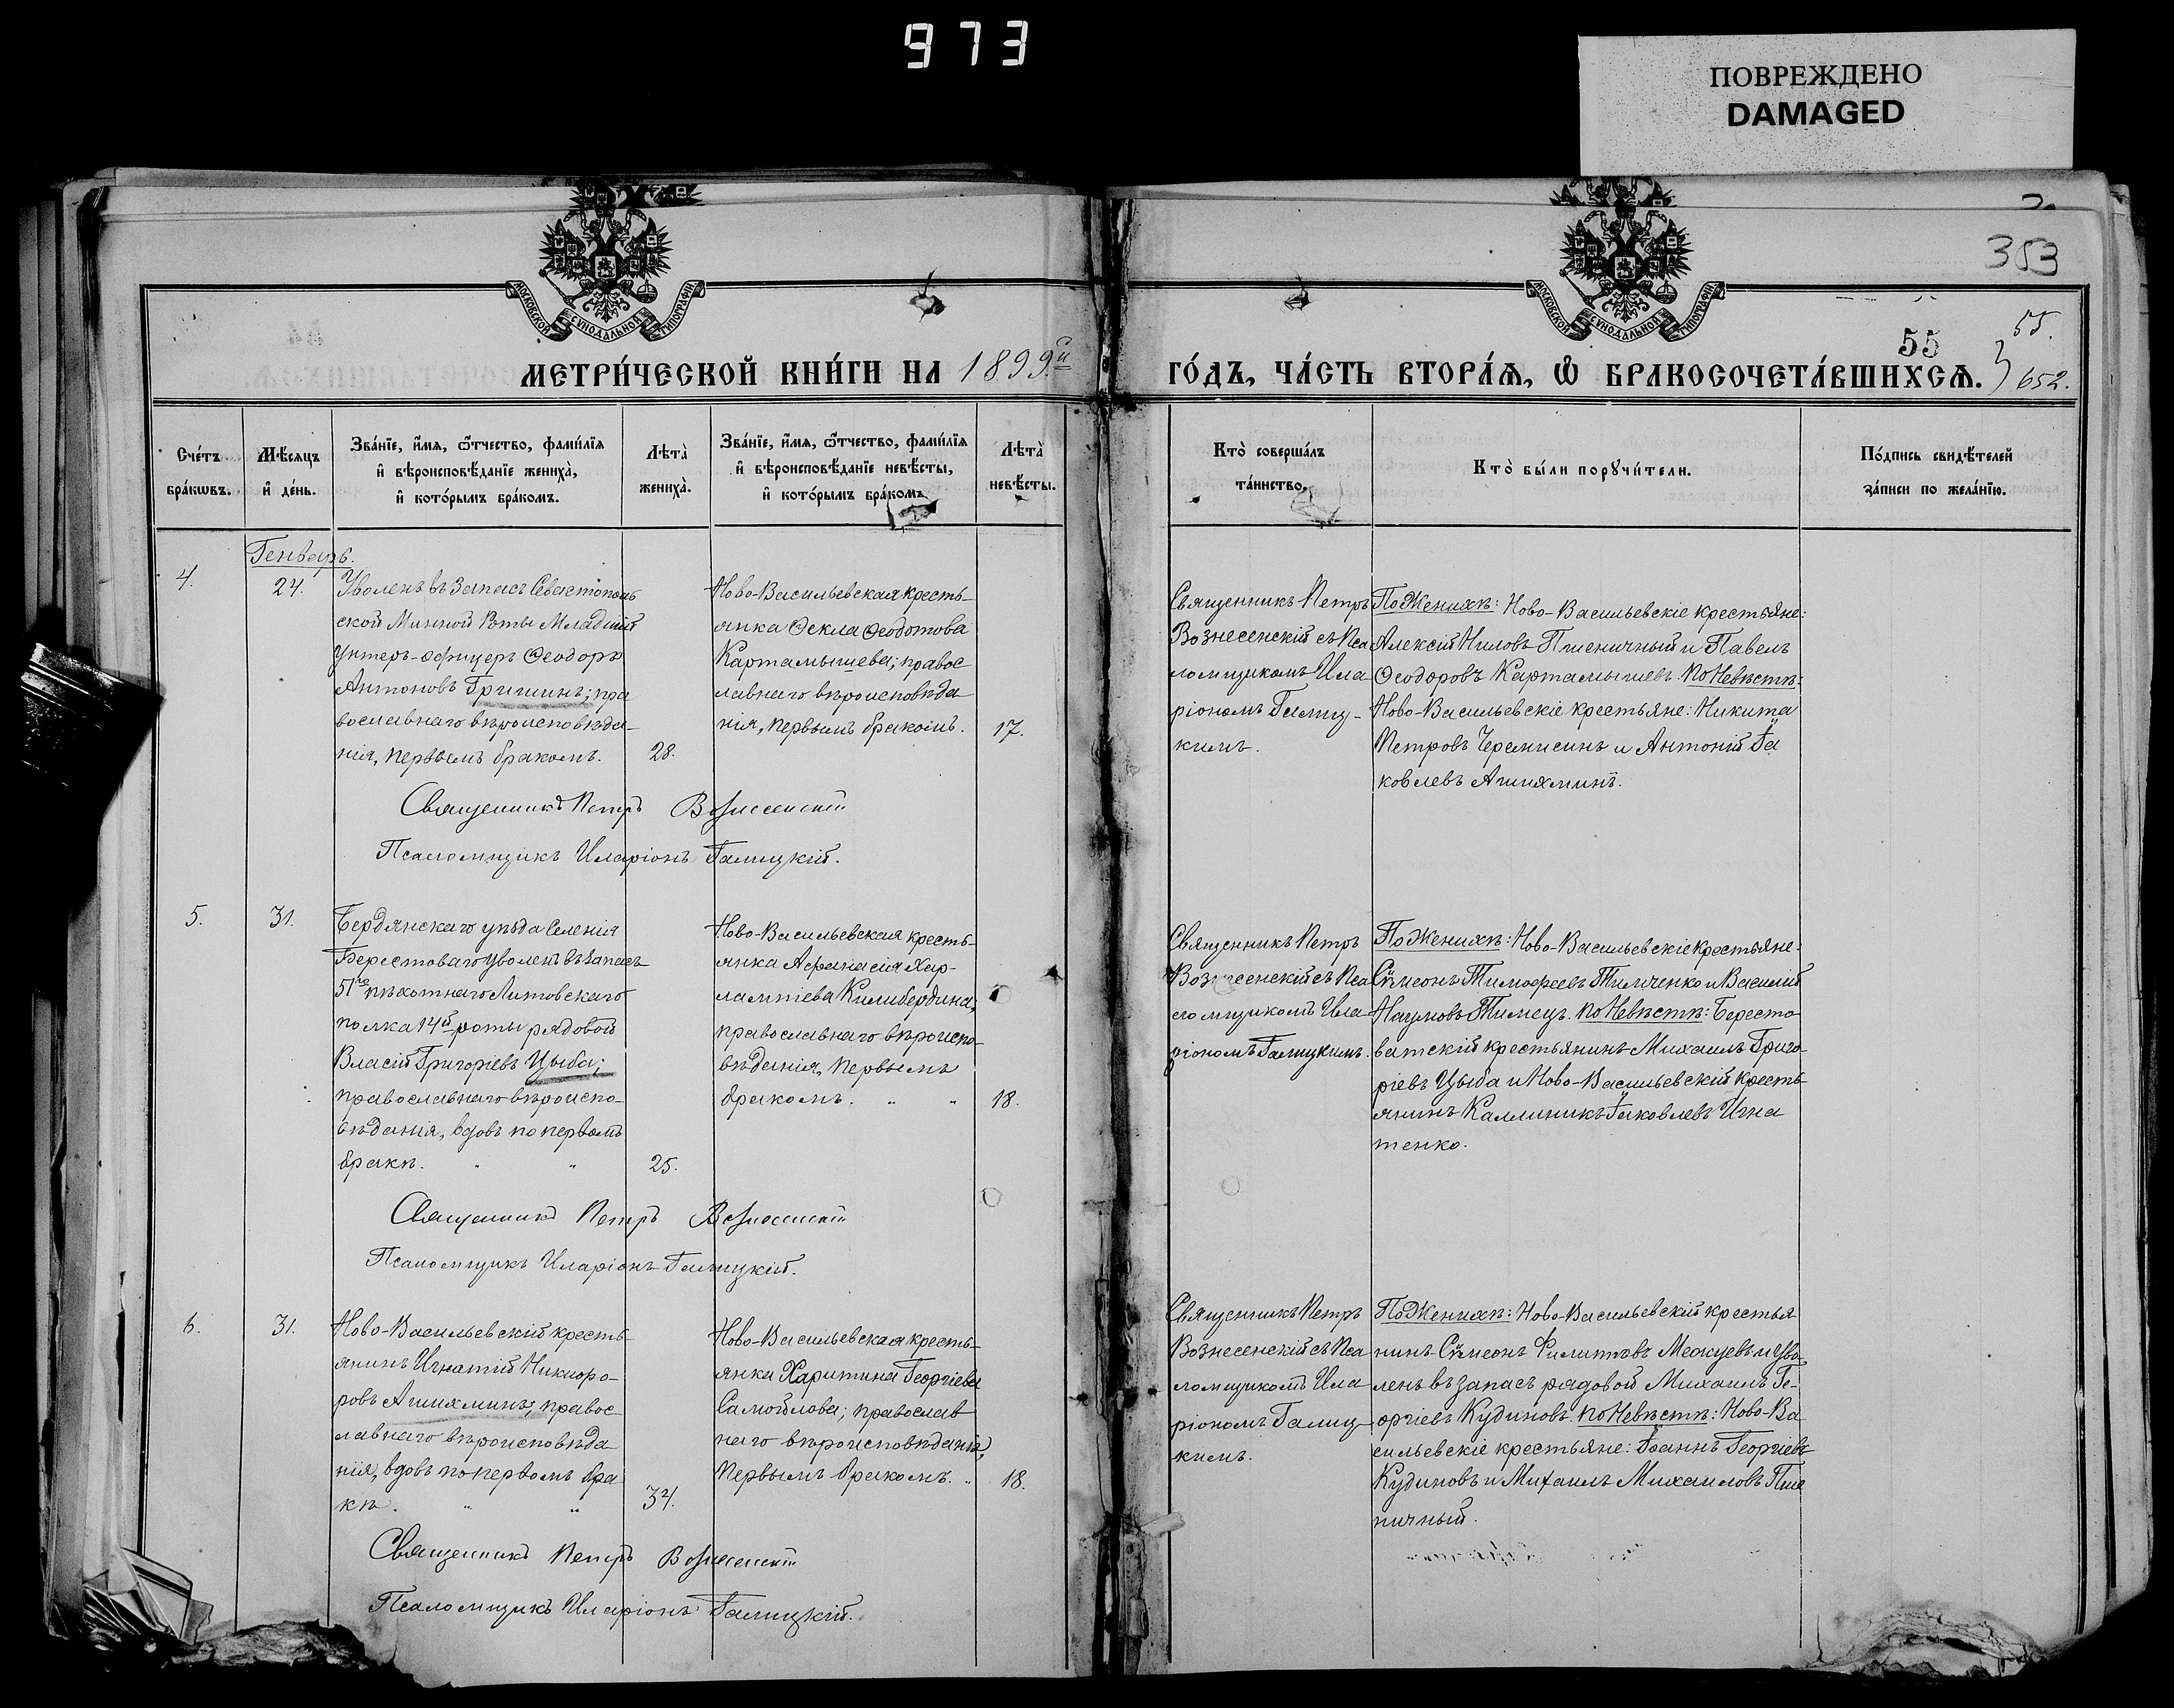 973
ПОВРЕЖДЕНО
DAMAGED
353
МОСКОВСКОЙ СѴНОДАЛЬНОЙ ТИПОГРАФІИ
МОСКОВСКОЙ СѴНОДАЛЬНОЙ ТИПОГРАФІИ
55
55.
652.
МЕТРИ́ЧЕСКОЙ КНИ́ГИ НА 1899й
ГО́ДЪ, ЧА́СТЬ ВТОРА́Я, Ѡ БРАКОСОЧЕТА́ВШИХСѦ.
Сче́тъ
бра́кѡвъ.
Мѣ́сяцъ
и҆ де́нь.
Зва́нїе, и҆́мя, ѻ҆́тчество, фами́лїя
и҆ вѣроисповѣ́данїе жениха̀,
и҆ кото́рымъ бра́комъ.
Лѣта̀
жениха̀.
Зва́нїе, и҆́мя, ѻ҆́тчество, фами́лїя
и҆ вѣроисповѣ́данїе невѣ́сты,
и҆ кото́рымъ бра́комъ
Лѣта̀
невѣ́сты.
Кто̀ соверша́лъ
та́инство.
Кто̀ бы́ли порꙋчи́тели.
По́дпись свидѣ́телей
за́писи по жела́нїю.
Генварь.
4.
24.
Уволенъ въ запасъ Севастополь
ской Минной Роты Младшій
унтеръ-офицеръ Ѳеодоръ
Антоновъ Гришинъ; пра
вославнаго вѣроисповѣда-
нія, первымъ бракомъ.
28.
Ново-Васильевская кресть-
янка Ѳекла Ѳеодотова
Картамышева; правос
лавнаго вѣроисповѣда
нія, первымъ бракомъ.
17.
Священникъ Петръ
Вознесенскій съ Пса
ломщикомъ Ила
ріономъ Галиц-
кимъ.
По Женихѣ: Ново-Васильевскіе крестьяне:
Алексій Ниловъ Пшеничный и Павелъ
Ѳеодоровъ Картамышевъ. По Невѣстѣ:
Ново-Васильевскіе крестьяне: Никита
Петровъ Черемисинъ и Антоній Іа
ковлевъ Ашихминъ.
Священникъ Петръ Вознесенскій
Псаломщикъ Иларіонъ Галицкій.
5.
31.
Бердянскаго уѣзда Селенія
Берестоваго уволенъ въ запасъ
51го пѣхотнаго Литовскаго
полка 14й роты рядовой
Власій Григоріевъ Цыба;
православнаго вѣроиспо-
вѣданія, вдовъ по первомъ
бракѣ. " "
25.
Ново-Васильевская кресть-
янка Аѳанасія Хар-
лампіева Килибердина;
православнаго вѣроиспо-
вѣданія, первымъ
бракомъ. " "
18.
Священникъ Петръ
Вознесенскій съ Пса
ломщикомъ Ила
ріономъ Галицкимъ.
По Женихѣ: Ново-Васильевскіе крестьяне:
Сѵмеонъ Тимоѳеевъ Тимченко и Василій
Наумовъ Тимецъ. По Невѣстѣ: Бересто
ватскій крестьянинъ Михаилъ Григо-
ріевъ Цыба и Ново-Васильевскій кресть-
янинъ Каллиникъ Іаковлевъ Игна
тенко.
Священникъ Петръ Вознесенскій
Псаломщикъ Иларіонъ Галицкій.
6.
31.
Ново-Васильевскій кресть-
янинъ Игнатій Никифо-
ровъ Ашихминъ; правос
лавнаго вѣроисповѣда-
нія, вдовъ по первомъ бра
кѣ. " "
34.
Ново-Васильевская кресть-
янка Харитина Георгіева
Самойлова; православ
наго вѣроисповѣданія,
первымъ бракомъ. "
18.
Священникъ Петръ
Вознесенскій съ Пса
ломщикомъ Ила
ріономъ Галиц
кимъ.
По Женихѣ: Ново-Васильевскій крестья
нинъ Сѵмеонъ Филипповъ Межуевъ и уво
ленъ въ запасъ рядовой Михаилъ Ге-
оргіевъ Кудиновъ. По Невѣстѣ: Ново-Ва
сильевскіе крестьяне: Іоаннъ Георгіевъ
Кудиновъ и Михаилъ Михаиловъ Пше
ничный.
Священникъ Петръ Вознесенскій
Псаломщикъ Иларіонъ Галицкій.